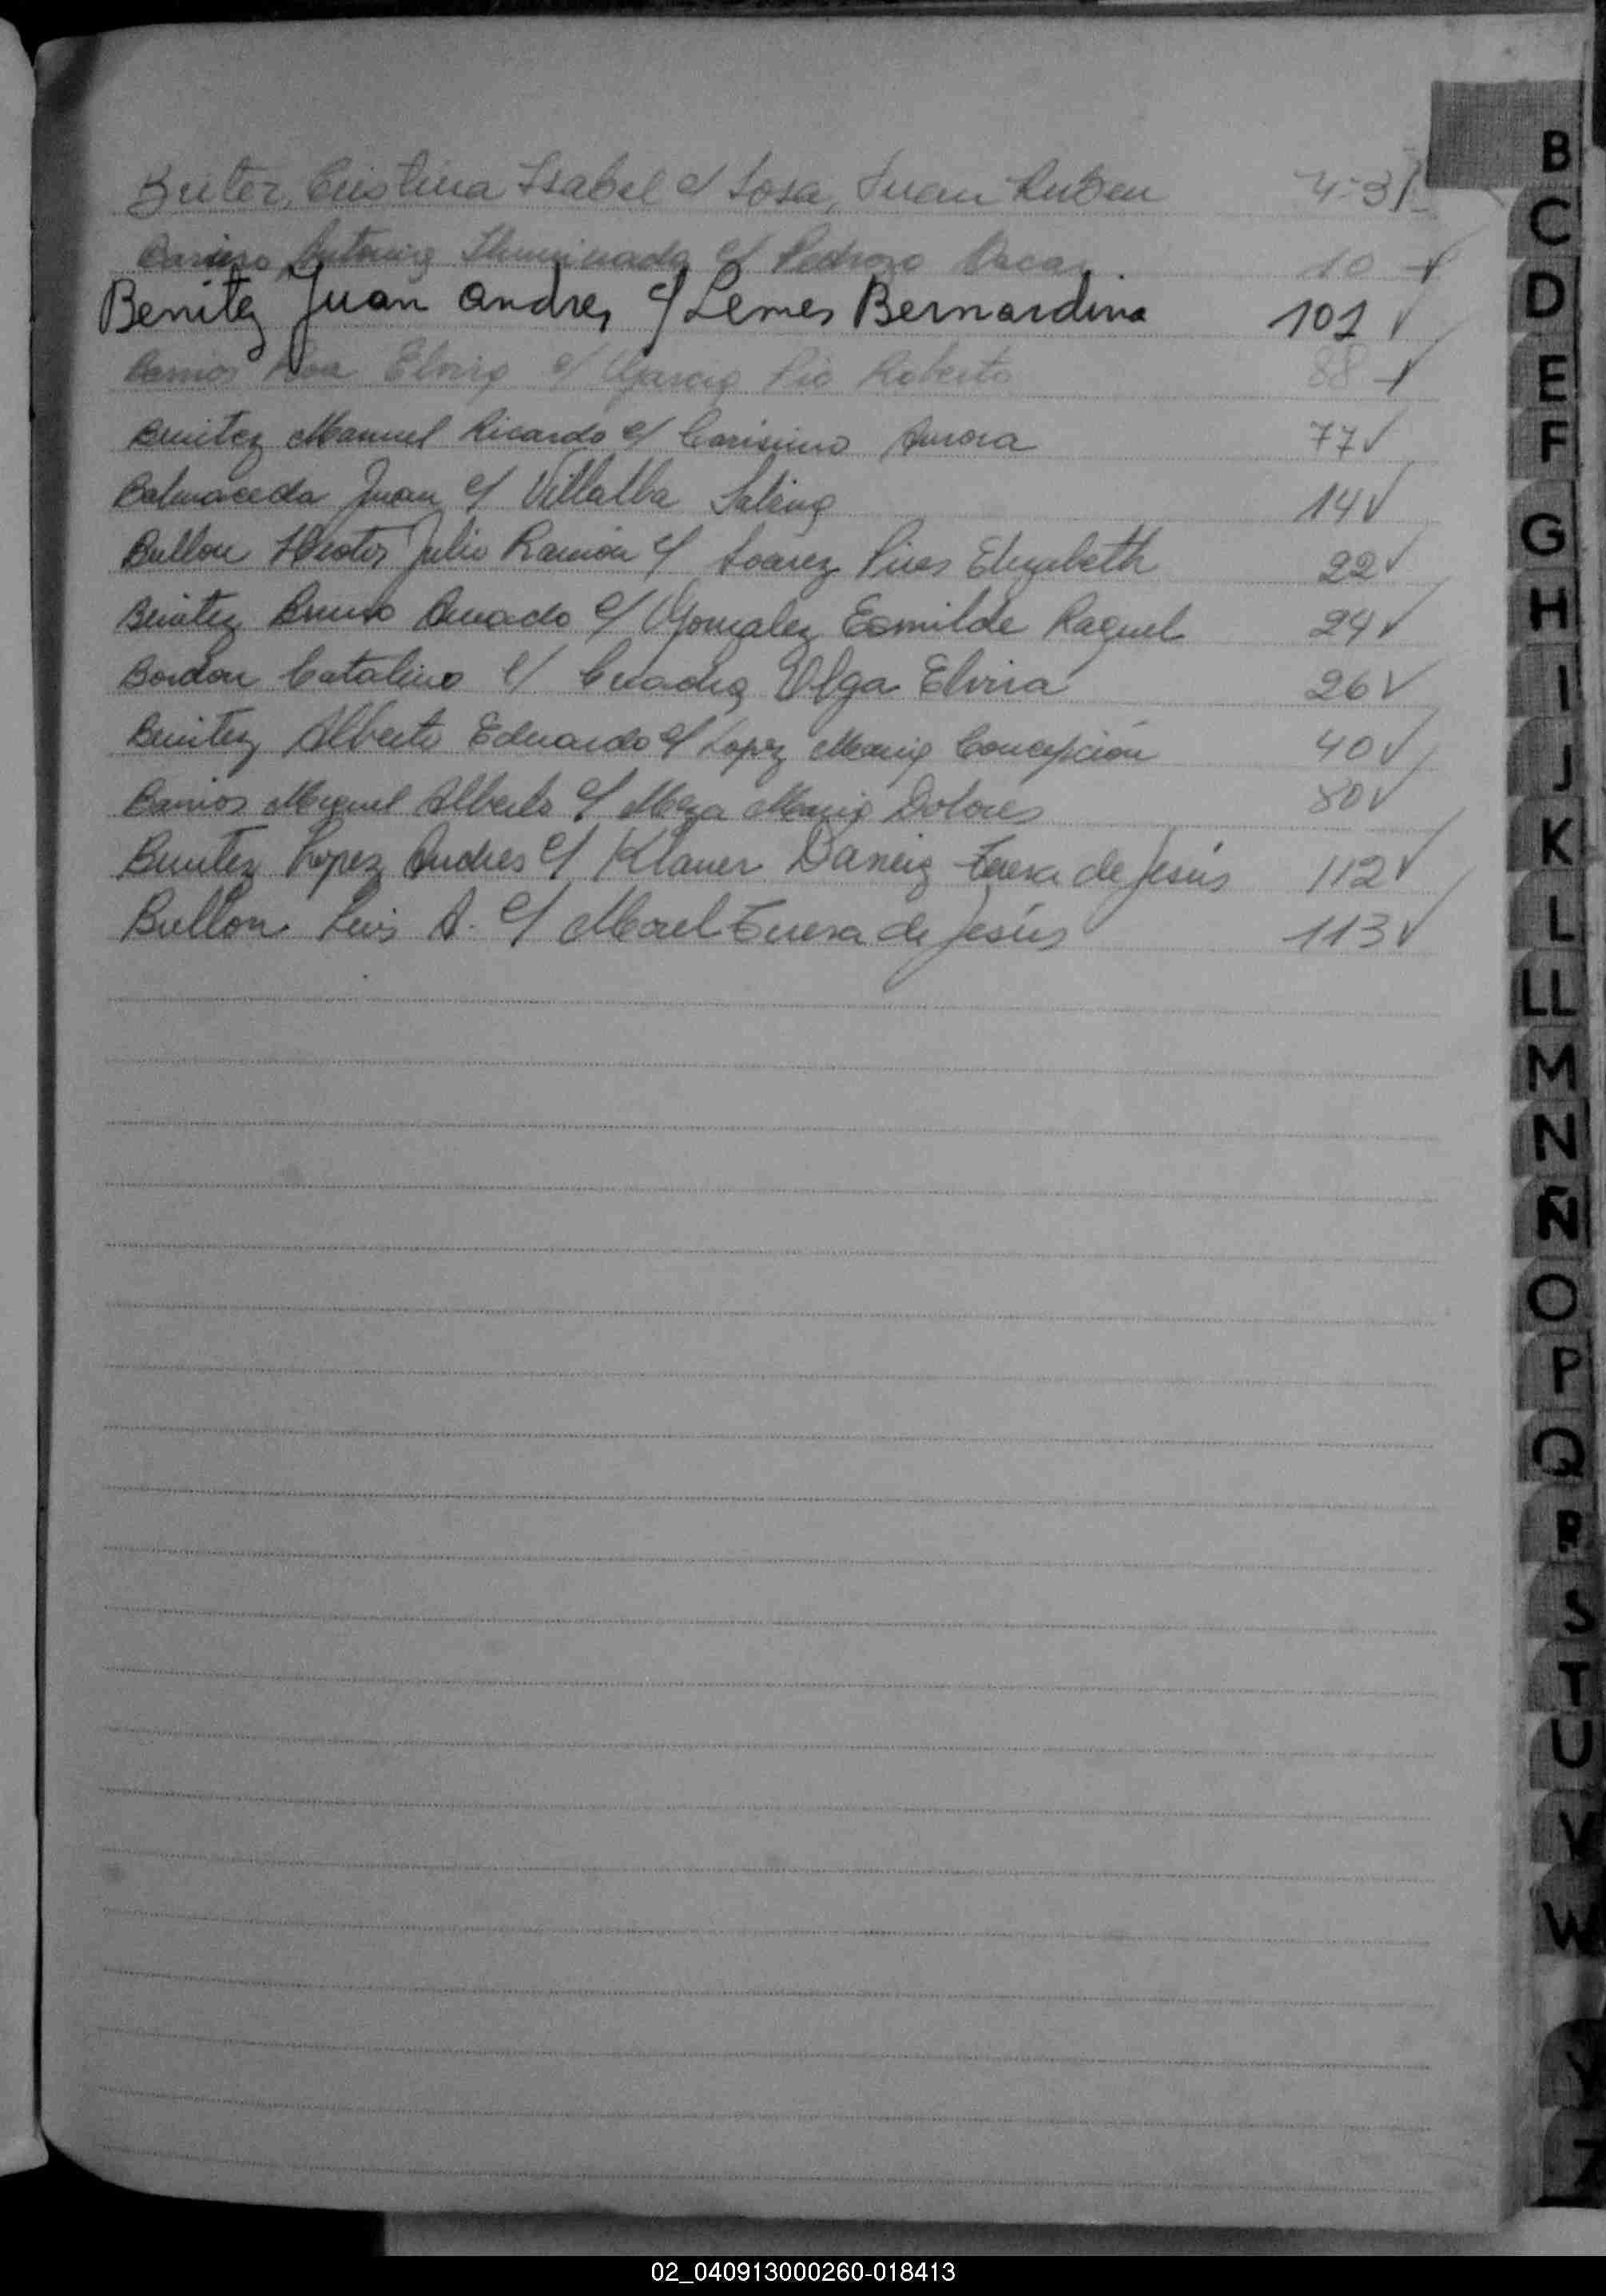 Briter, Cristina Isabel c/ Sosa, Juan Ruben 4-3/
Antonia Iluminada c/ Pedrozo Oscar. 10 ✓
Benitez Juan Andres c/ Lemes Bernardina 101 ✓
Barrios Elvira c/ Garcia Pio Roberto 88 ✓
Benitez Manuel Ricardo c/ Carisimo Aurora 77 ✓
Balmaceda Juan c/ Villalba Sabina 14 ✓
Bullon Hector Julio Ramon c/ Soarez Pires Elizabeth 22 ✓
Benitez Bruno Amado c/ Gonzalez Esmilde Raquel 24 ✓
Bordon Catalino c/ Olga Elvira 26 ✓
Benitez Alberto Eduardo c/ Lopez Maria Concepción 40 ✓
Barrios Miguel Alberto c/ Meza Maria Dolores 80 ✓
Benitez Lopez Andres c/ Klauer Teresa de Jesús 112 ✓
Bullon Luis A. c/ Morel Teresa de Jesús 113 ✓
B
C
D
E
F
G
H
I
J
K
L
LL
M
N
Ñ
O
P
Q
R
S
T
U
V
W
Y
Z
02_040913000260-018413